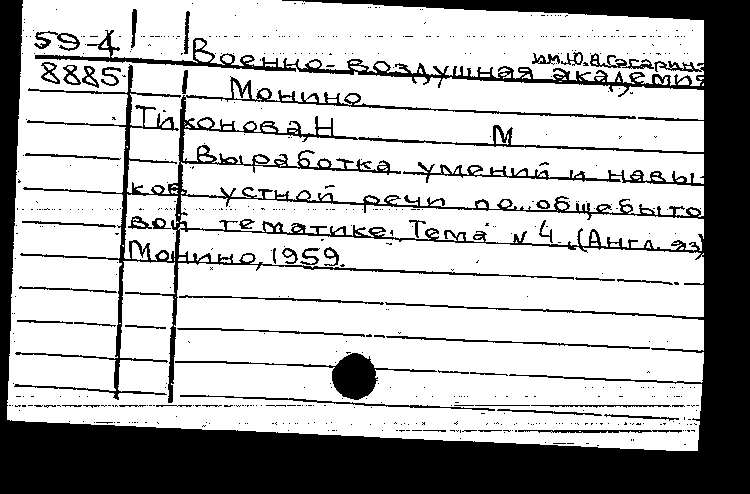 59-4
им. Ю.А.Гагарина
Военно-воздушная академия
8885
Монино
Тихонова, Н М
Выработка умений и навы-
ков устной речи по общебыто
вой тематике. Тема № 4. (Англ. яз)
Монино, 1959.